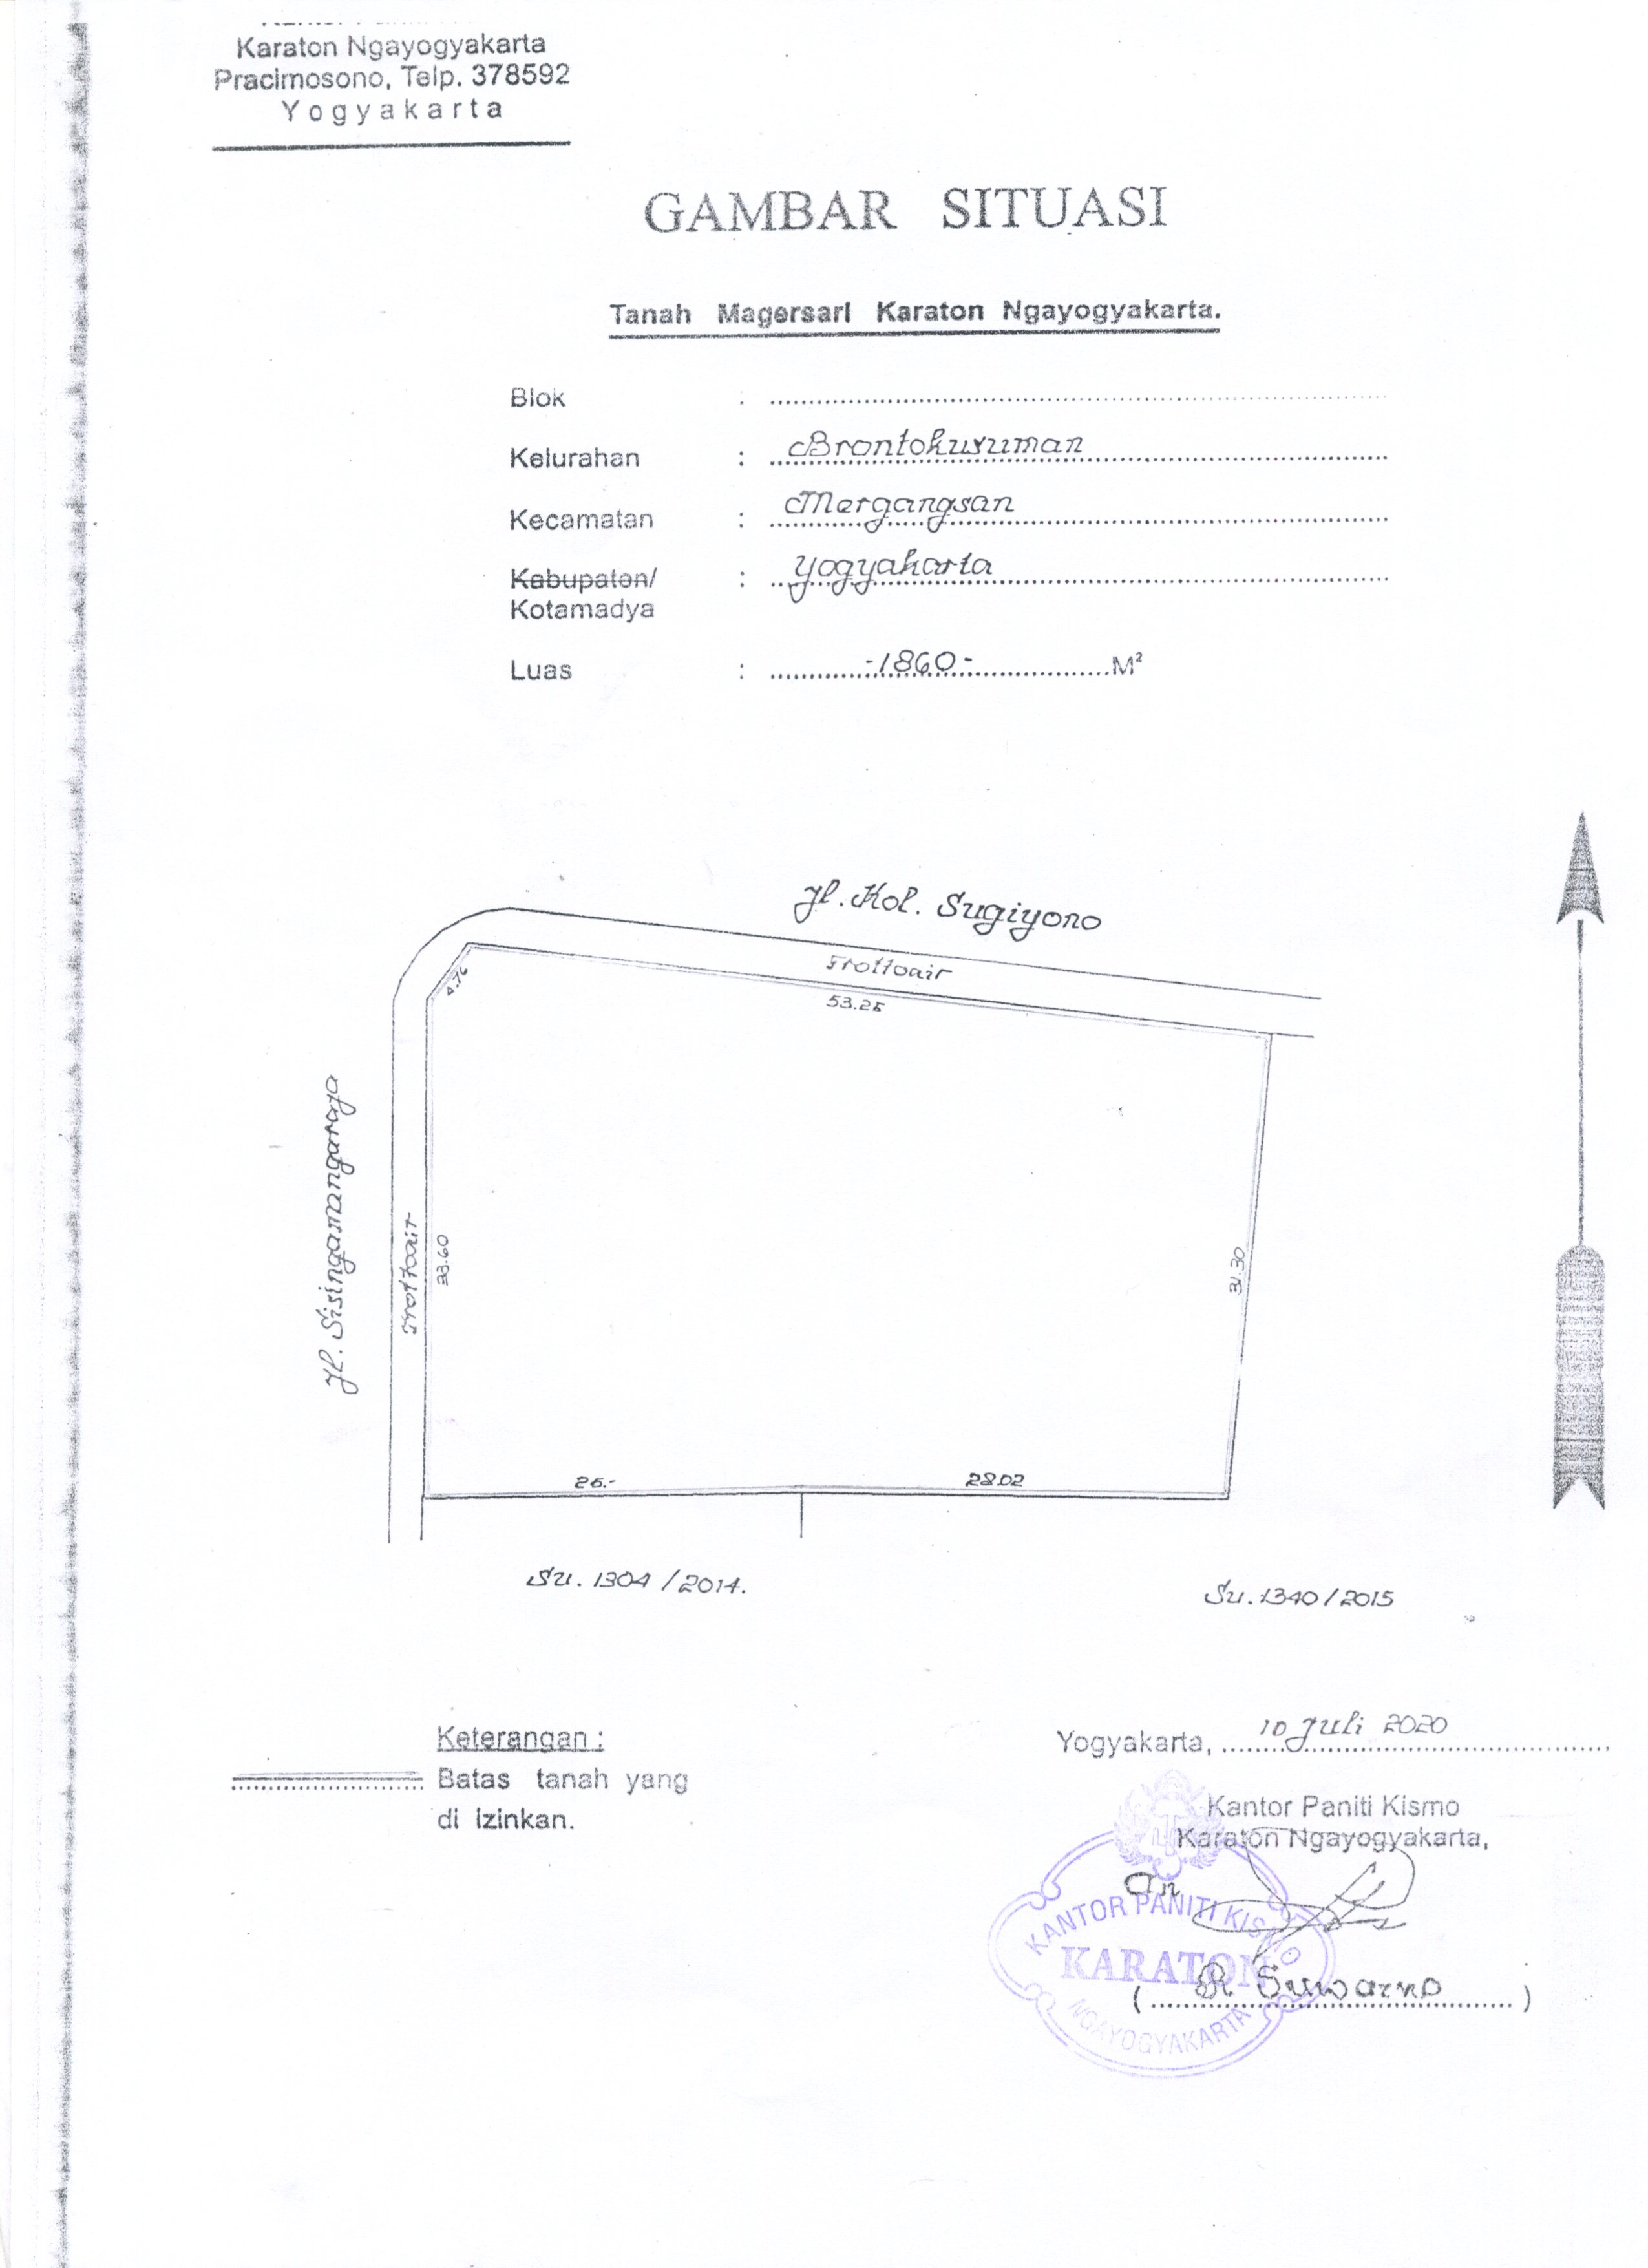 Karaton Ngayogyakarta
Pracimosono, Telp. 378592
Yogyakarta
GAMBAR SITUASI
Tanah Magersari Karaton Ngayogyakarta.
Blok :
Kelurahan : Brontokusuman
Kecamatan : Mergangsan
Kabupaten/ : Yogyakarta
Kotamadya
Luas : -1860- M²
Jl. Kol. Sugiyono
Trottoair
4.76
53.25
Jl. Sisingamangaraja
Trottoair
33.60
31.30
25.-
28.02
Su. 1304 / 2014.
Su. 1340 / 2015
Keterangan :
Batas tanah yang
di izinkan.
Yogyakarta, 10 Juli 2020
Kantor Paniti Kismo
Karaton Ngayogyakarta,
An
KANTOR PANITI KISMO
KARATON
NGAYOGYAKARTA
( R Suwarno )